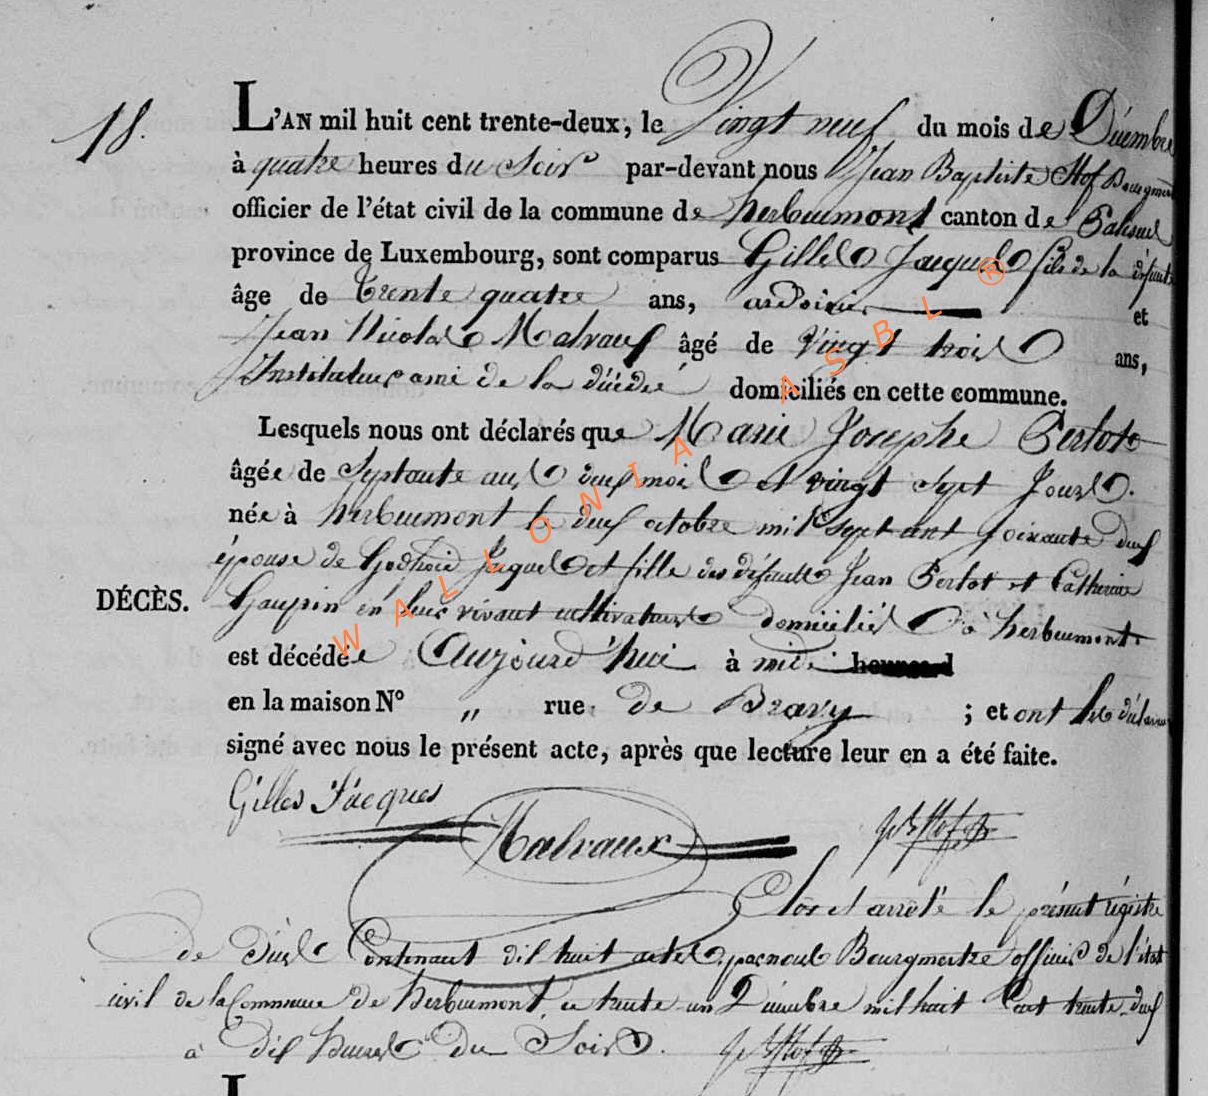 18
L'AN mil huit cent trente-deux, le Vingt neuf du mois de Décembre
à quatre heures du Soir par-devant nous Jean Baptiste Hof Bourgmestre
officier de l'état civil de la commune de herbeumont canton de Paliseul
province de Luxembourg, sont comparus Gilles Jacques fils de la défunte
âge de Trente quatre ans, ardoisier et
Jean Nicolas Malvaux âgé de Vingt trois ans,
Instituteur ami de la décédée domiciliés en cette commune.
Lesquels nous ont déclarés que Marie Josephe Perlot
âgée de Septante ans deux mois et vingt sept Jours.
née à herbeumont le deux octobre mil sept cent soixante deux
épouse de Godfroid Jacques et fille des défunts Jean Perlot et Catherine
Gaupin en leur vivant cultivateurs domiciliés à herbeumont
DÉCÈS.
est décédée Aujourd'hui à midi
en la maison N° " rue de Bravy ; et ont les déclarans
signé avec nous le présent acte, après que lecture leur en a été faite.
Gilles Jacques
Malvaux
JB Hof
Clos et arrêté le présent régistre
de Décès Contenant dix huit actes, par nous Bourgmestre officier de l'état
civil de la Commune de herbeumont, ce trente un Décembre mil huit Cent trente-deux
à dix heures du Soir.
JB Hof
WALLONIA ASBL ®